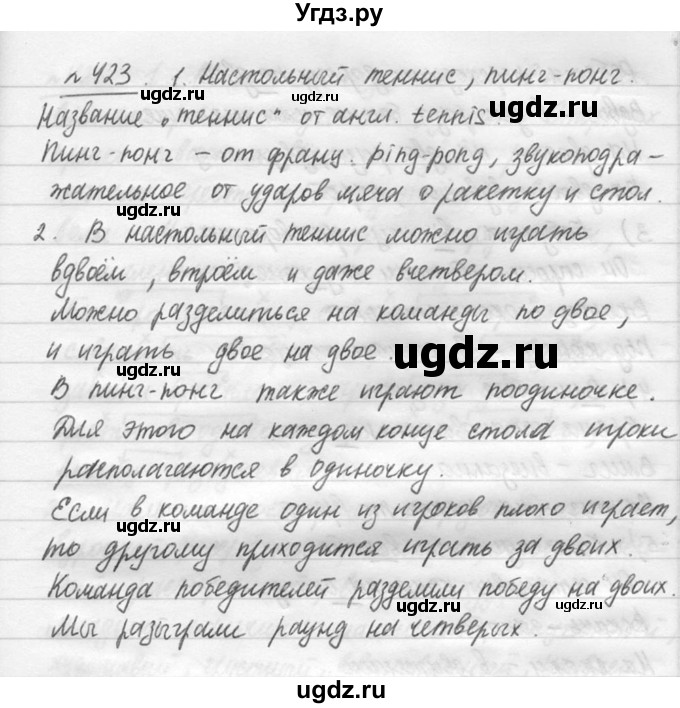 Угдз.ру
№ 423. 1. Настольный теннис, пинг-понг.
Название „теннис“ от англ. tennis.
Пинг-понг – от франц. ping-pong, звукоподра-
жательное от ударов мяча о ракетку и стол.
2. В настольный теннис можно играть
вдвоём, втроём и даже вчетвером.
Можно разделиться на команды по двое,
и играть двое на двое.
В пинг-понг также играют поодиночке.
Для этого на каждом конце стола игроки
располагаются в одиночку.
Если в команде один из игроков плохо играет,
то другому приходится играть за двоих.
Команда победителей разделили победу на двоих.
Мы разыграли раунд на четверых.
ugdz.ru
ugdz.ru
ugdz.ru
ugdz.ru
ugdz.ru
ugdz.ru
ugdz.ru
ugdz.ru
ugdz.ru
ugdz.ru
ugdz.ru